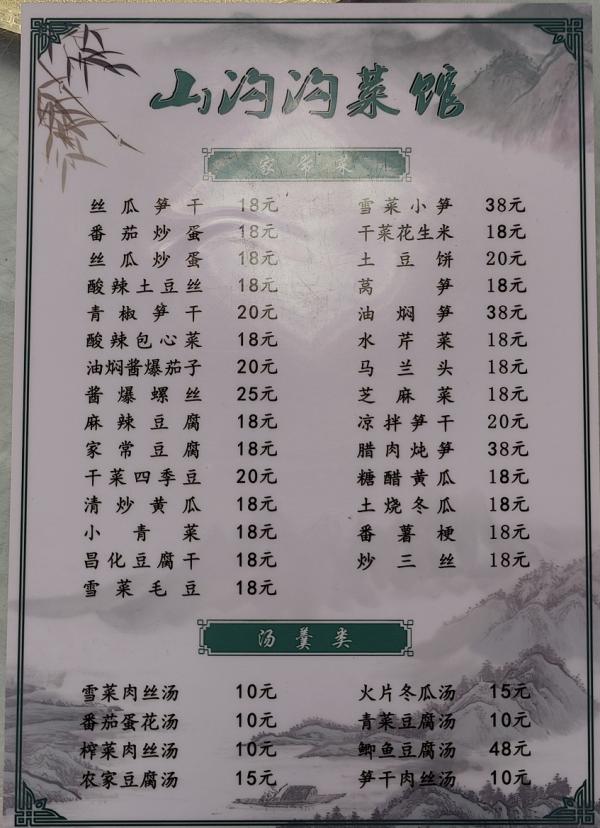 山沟沟菜馆
家常菜
丝瓜笋干 18元 雪菜小笋 38元
番茄炒蛋 18元 干菜花生米 18元
丝瓜炒蛋 18元 土豆饼 20元
酸辣土豆丝 18元 莴笋 18元
青椒笋干 20元 油焖笋 38元
酸辣包心菜 18元 水芹菜 18元
油焖酱爆茄子 20元 马兰头 18元
酱爆螺丝 25元 芝麻菜 18元
麻辣豆腐 18元 凉拌笋干 20元
家常豆腐 18元 腊肉炖笋 38元
干菜四季豆 20元 糖醋黄瓜 18元
清炒黄瓜 18元 土烧冬瓜 18元
小青菜 18元 番薯梗 18元
昌化豆腐干 18元 炒三丝 18元
雪菜毛豆 18元
汤羹类
雪菜肉丝汤 10元 火片冬瓜汤 15元
番茄蛋花汤 10元 青菜豆腐汤 10元
榨菜肉丝汤 10元 鲫鱼豆腐汤 48元
农家豆腐汤 15元 笋干肉丝汤 10元